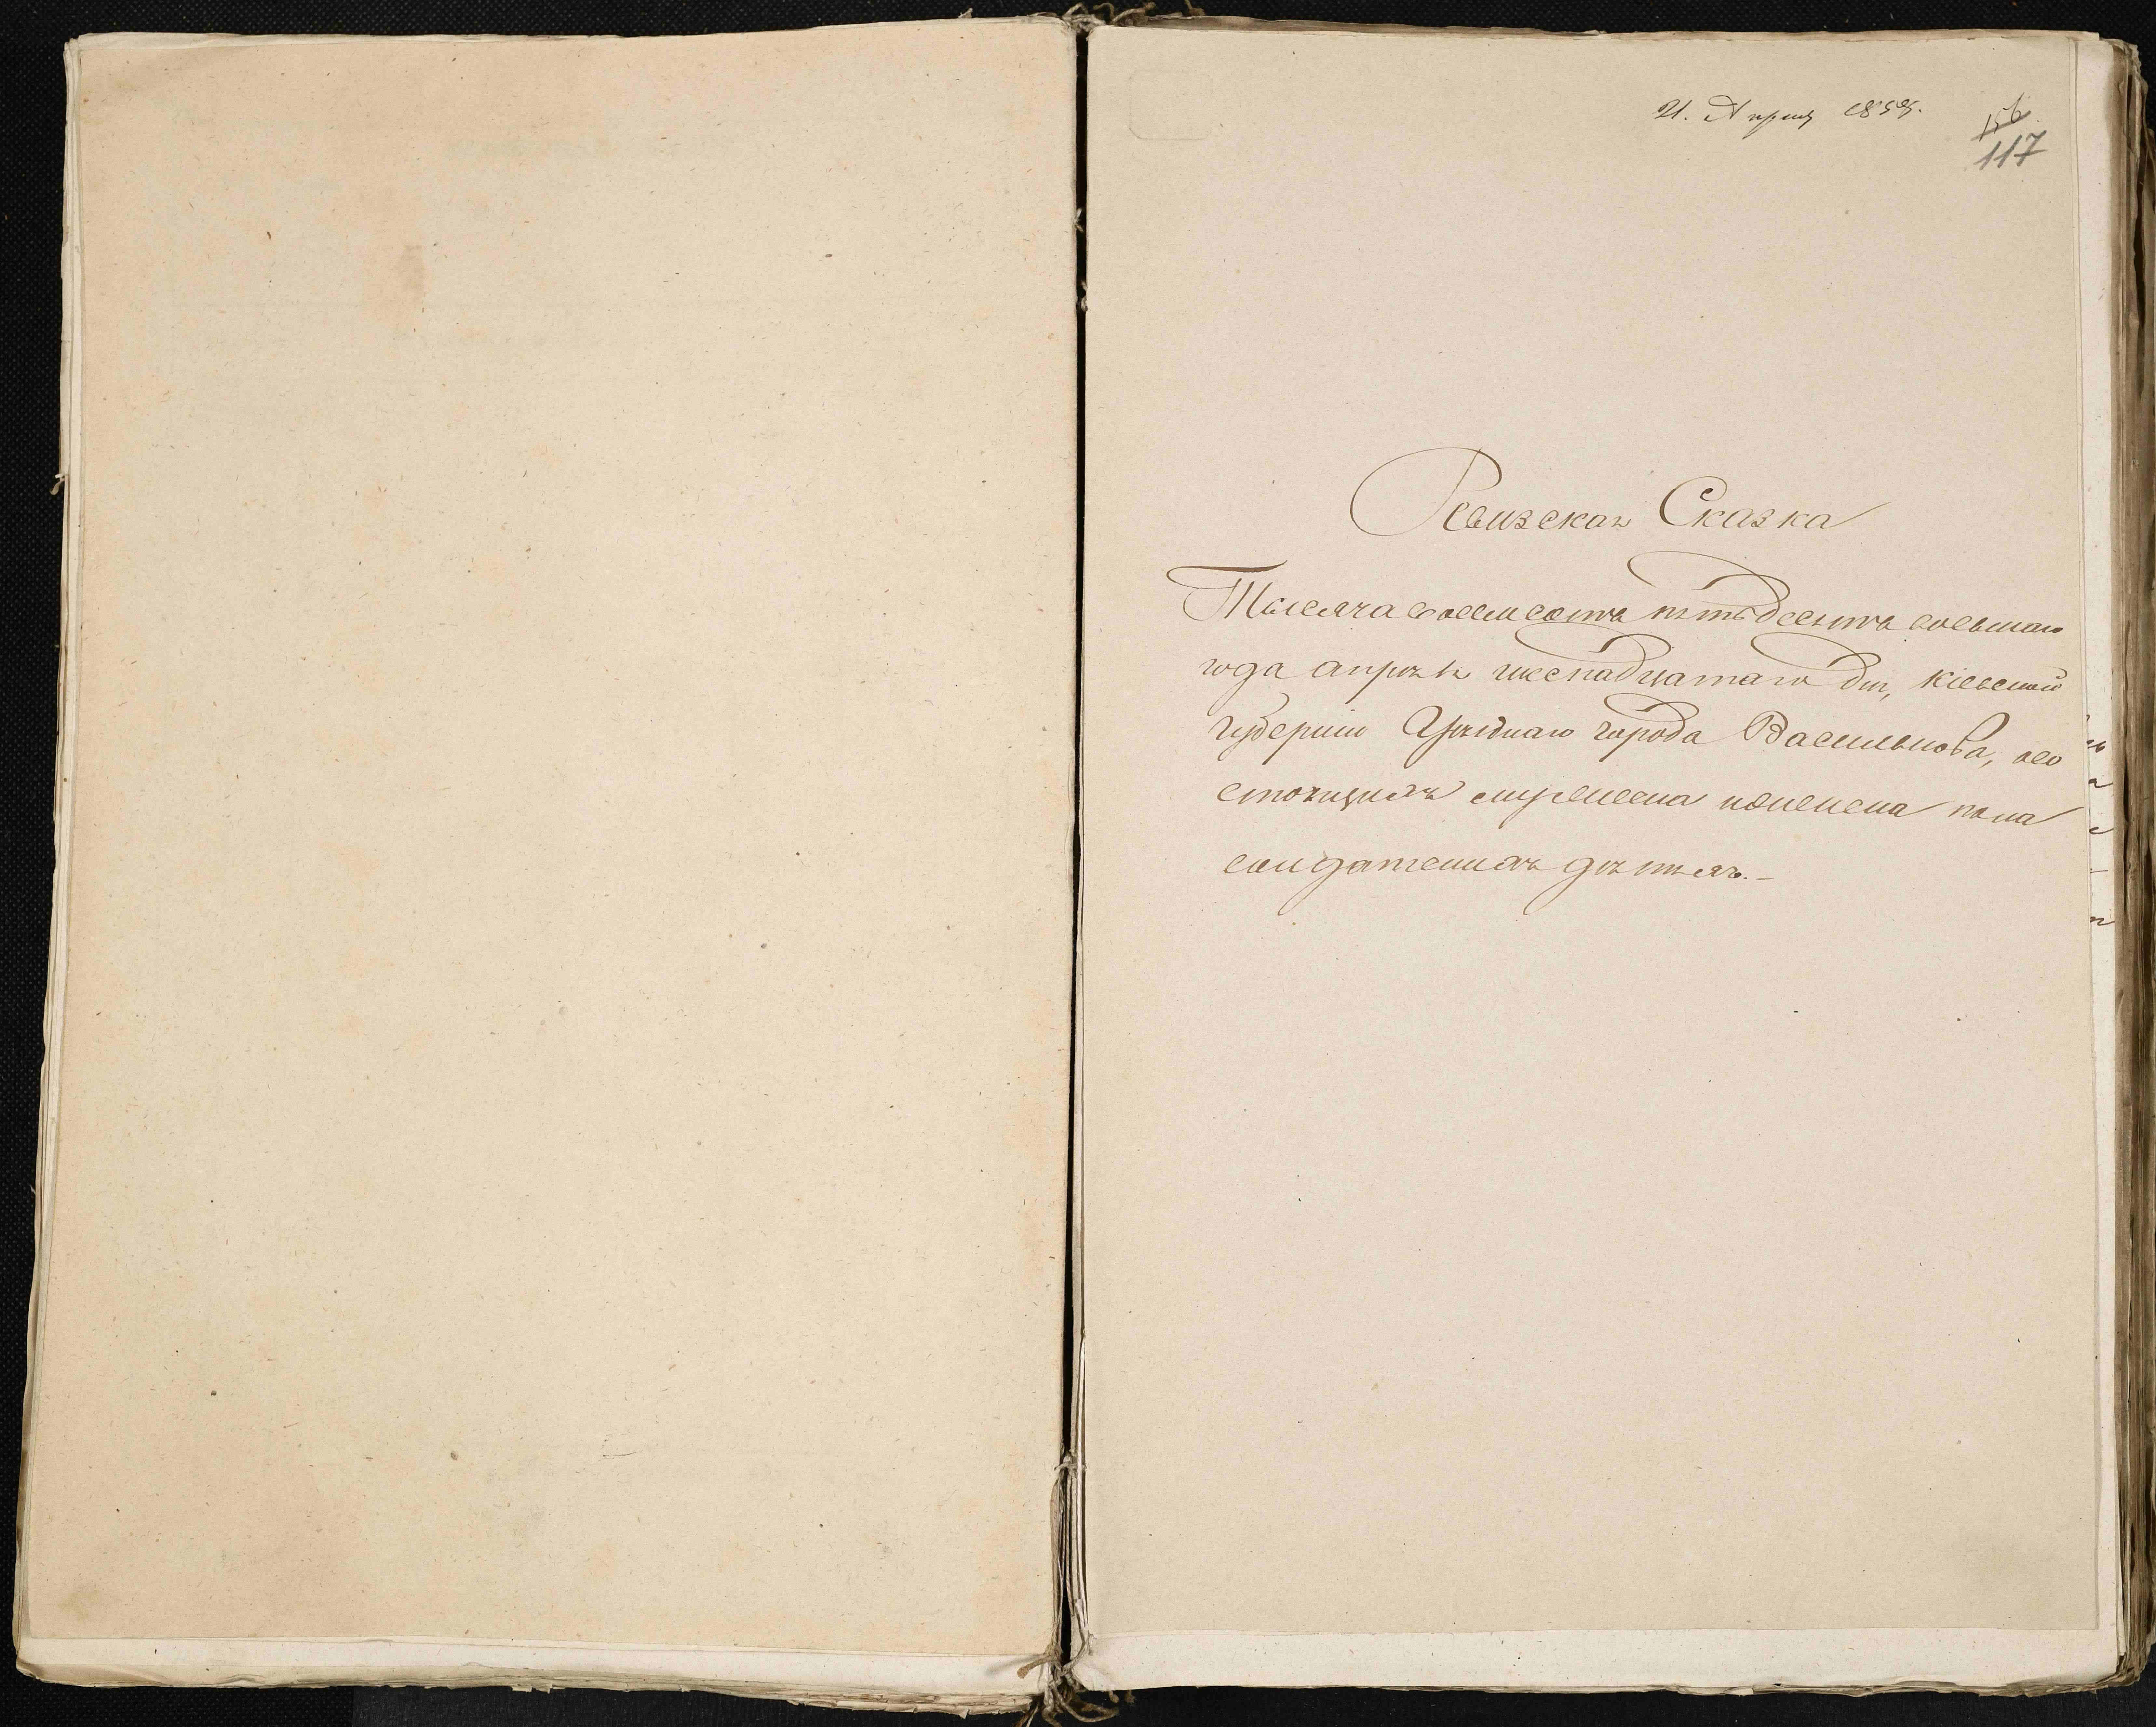 21. Апреля 1858.
156
117
Ревизская Сказка
Тысяча восемсотъ пятьдесятъ восьмаго
года апрѣля шеснадцатаго дня, Кіевской
губерніи Уѣзднаго города Василькова, о со
стоящихъ
солдатскихъ дѣтяхъ.-